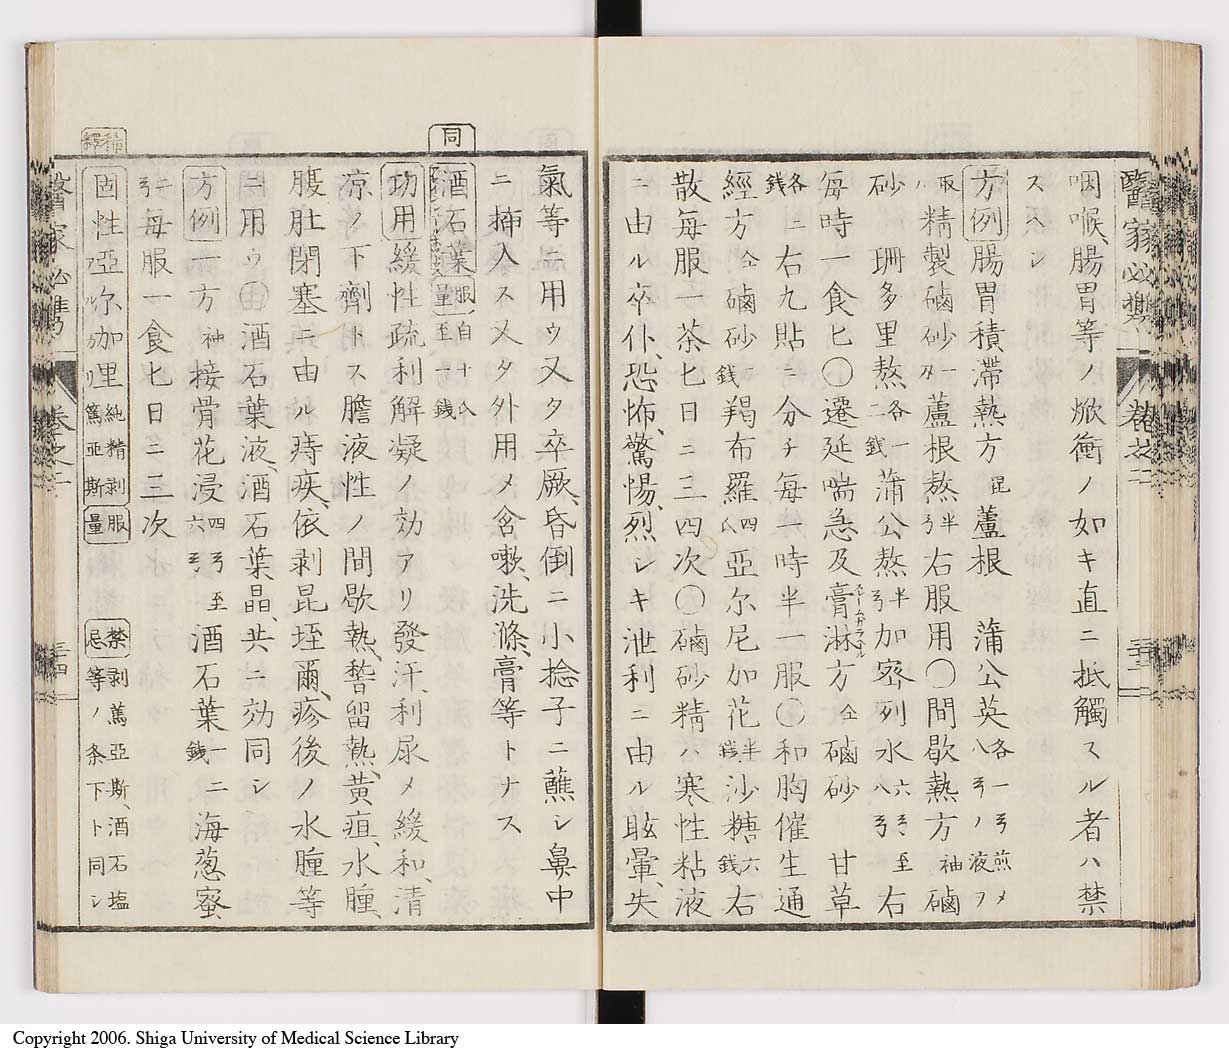 醫家必携 卷之二 三十三
咽喉、腸胃等ノ焮衝ノ如キ直ニ抵觸スル者ハ禁
スヘシ
方例 腸胃積滯熱方 昆 蘆根 蒲公英 各一ヲ煎メ八ヲノ液ヲ
取ハ 精製磠砂 一 蘆根熬 半 右服用〇間歇熱方 袖 磠
砂 珊多里熬 各一二錢 蒲公熬 半 加密列水 六ヨ至八ヲ 右
每時一食匕〇遷延喘急及膏淋方 仝 磠砂 甘草
各錢 ニ右九貼ニ分チ每一時半一服〇和胸催生通
經方 仝 磠砂 一錢 羯布羅 四氏 亞尔尼加花 半錢 沙糖 六錢 右
散每服一茶匕日ニ三四次〇磠砂精ハ寒性粘液
ニ由ル卒仆、恐怖、驚惕、烈シキ泄利ニ由ル眩暈、失
氣等ニ用ウ又タ卒厥、昏倒ニ小捻子ニ蘸シ鼻中
ニ揷入ス又タ外用メ含嗽、洗滌、膏等トナス
同
酒石葉 服量 自十氏至一錢
功用 緩性疏利解凝ノ効アリ發汗、利尿メ緩和、清
凉ノ下劑トス膽液性ノ間歇熱、稽留熱、黄疸、水腫、
腹肚閉塞ニ由ル痔疾、依剥昆垤爾、疹後ノ水腫等
ニ用ウ〇酒石葉液、酒石葉晶、共ニ効同シ
方例 一方 袖 接骨花浸 四ヲ至六ヲ 酒石葉 一錢 二海葱蜜
二ヲ 每服一食匕日ニ三次
稀釋
固性亞尔加里 純精剥篤亞斯 服量 禁忌 剥篤亞斯、酒石塩等ノ条下ト同シ
醫家必携 卷之二 三十四
Copyright 2006. Shiga University of Medical Science Library